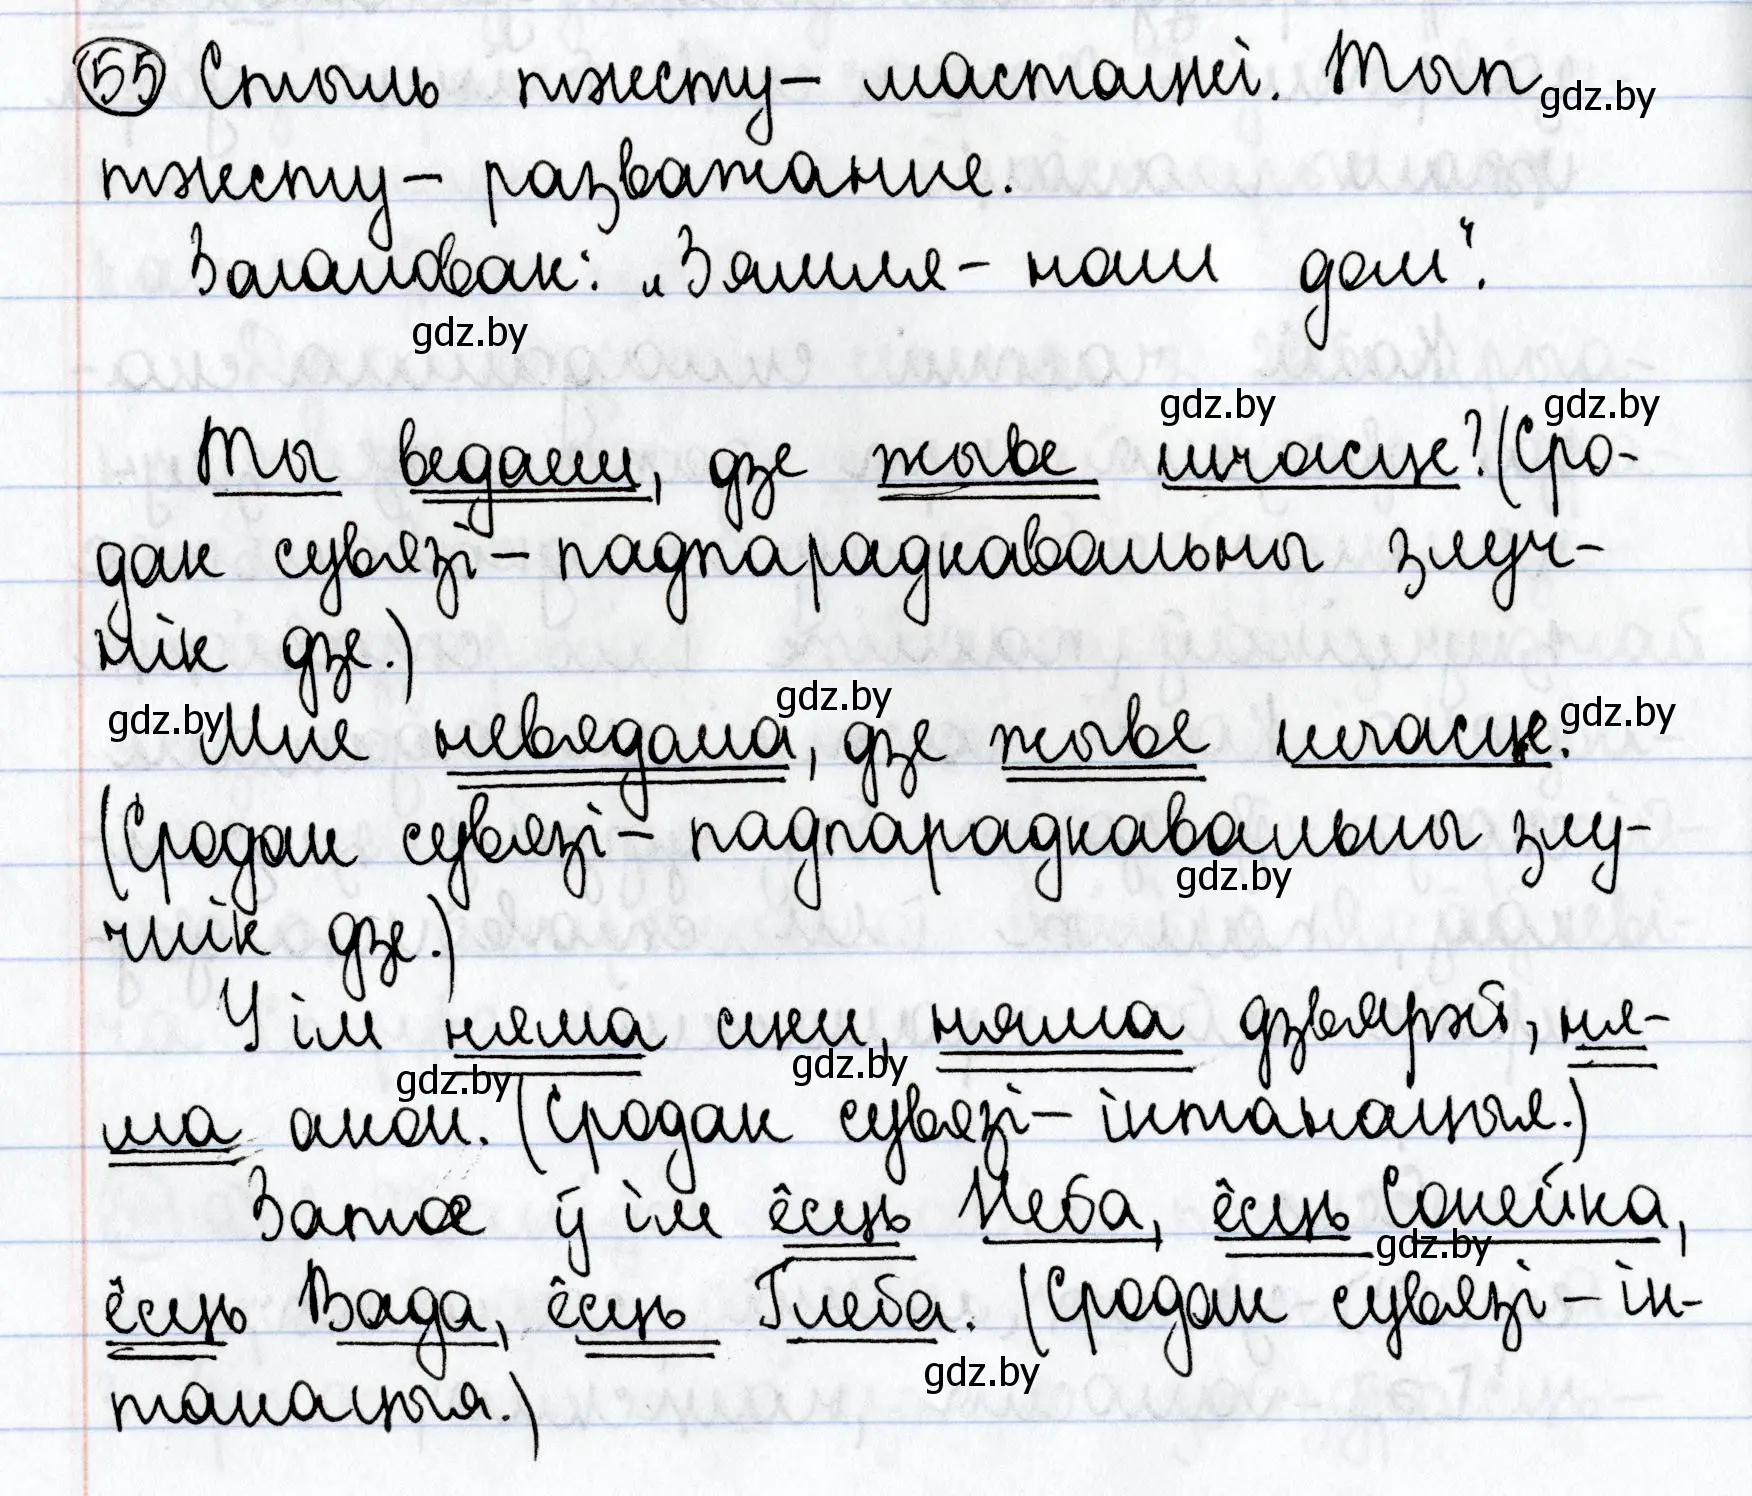 55 Стыль тэксту – мастацкі. Тып gdz.by
тэксту – разважание.
Загаловак: „Зямля – наш дом".
gdz.by
gdz.by gdz.by
Ты ведаеш, дзе жыве шчасце? (Сро-
дак сувязі – падпарадкавальны злуч-
нік дзе.)
gdz.by gdz.by gdz.by
Мне невядома, дзе жыве шчасце.
(Сродак сувязі – падпарадкавальны злу-
gdz.by
чнік дзе.)
У ім няма сцен, няма дзвярэй, ня-
gdz.by gdz.by
ма акон. (Сродак сувязі – інтанацыя.)
Затое ў ім ёсць Неба, ёсць Сонейка,
gdz.by
ёсць Вада, ёсць Глеба. (Сродак сувязі – ін-
gdz.by
танацыя.)